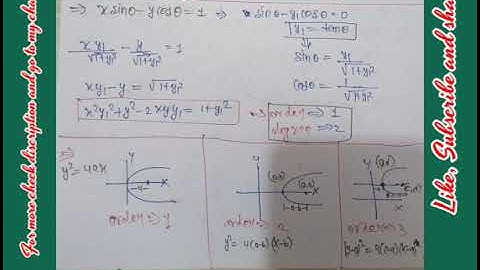 For more check discription and go to my cha
⇒ x sinθ - y cosθ = 1 ⇒ sinθ - y₁ cosθ = 0
y₁ = tanθ
xy₁/√1+y₁² - y/√1+y₁² = 1
sinθ = y₁/√1+y₁²
xy₁ - y = √1+y₁²
cosθ = 1/√1+y₁²
x²y₁² + y² - 2xyy₁ = 1+y₁²
order ⇒ 1
degree ⇒ 2
y² = 4ax
y
x
order ⇒ 1
y
x
order ⇒ 2
y² = 4(a-b)(x-b)
y
x
order ⇒ 3
Like, Subscribe and sha